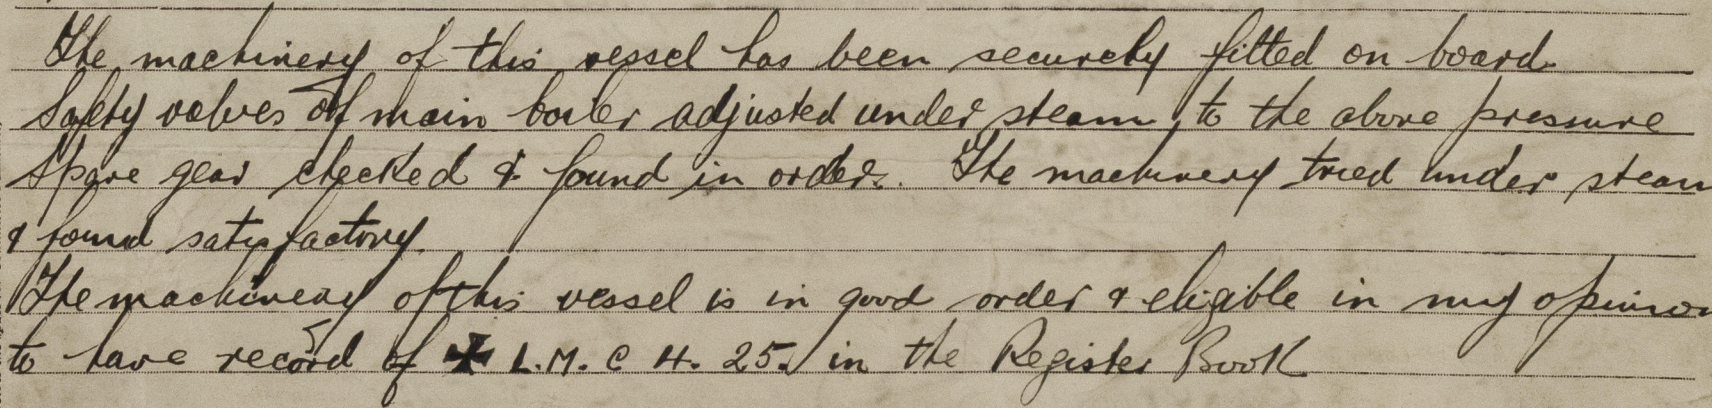 The machinery of this vessel has been securely fitted on board.
Safety valves of main boiler adjusted under steam to the above pressure
Spare gear checked & found in order. The machinery tried under steam
& found satisfactory.
The machinery of this vessel is in good order & eligible in my opinion
to have record of ✠ L.M.C 4. 25. in the Register Book